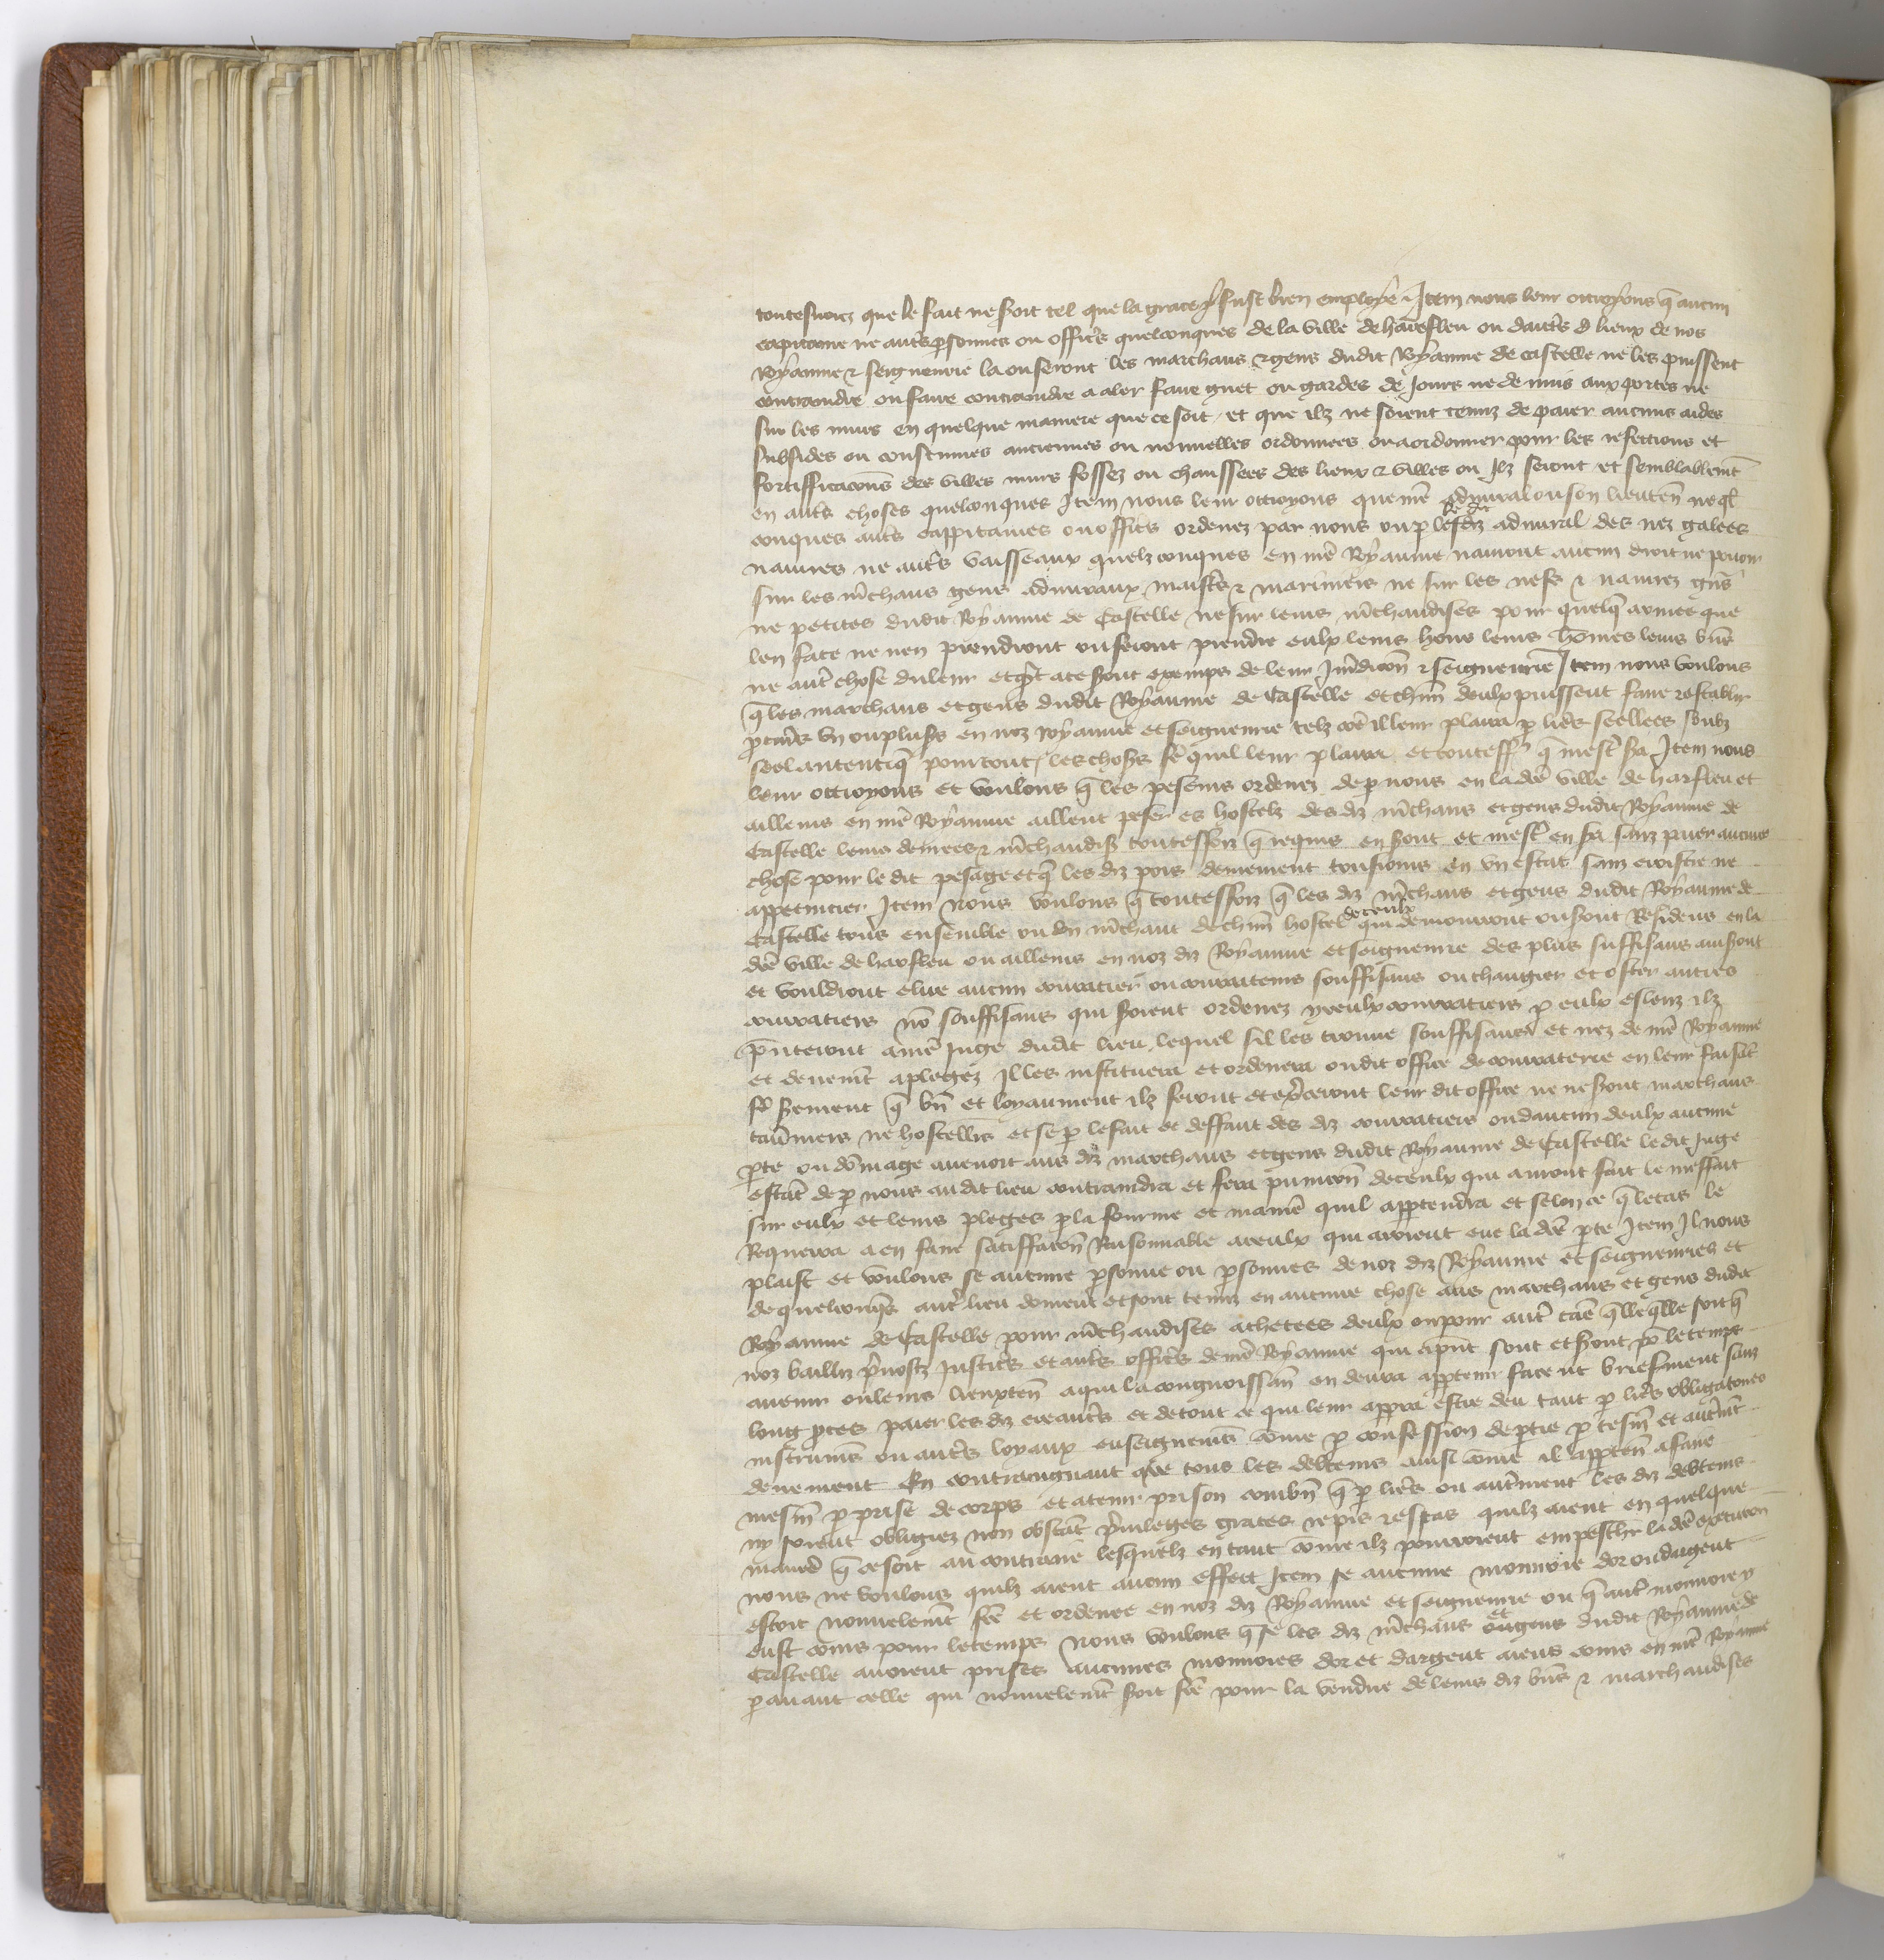 toutesvoiez que le fait ne soit tel que la grace y fust bien employé Item nous leur ottroyons q̃ aucun
capitaine ne autr̃s ꝑsonnes ou offic̃rs quelconques de la ville de harefleu ou dautr̃s lieux de nos
Royaume ⁊ seigneurie la ou seront les marchans ⁊ gens dudit Royaume de castelle ne les puissent
contraindre ou faire contraindre a aler faire guet ou gardes de jours ne de nuis aux portes ne
sur les murs en quelque maniere que ce soit et que ilz ne soient tenuz de paier aucuns aides
subsides ou coustumes anciennes ou nouvelles ordonnees ou a ordonner pour les refections et
fortifficacions des villes murs fossez ou chaussees des lieux ⁊ villes ou Ilz seront et semblablemẽt
en autr̃s choses quelconques Item nous leur ottroyons que nr̃e admiral ou son lieuteñ ne ql̃
conques autr̃s cappitaines ou offic̃rs ordenez par nous ou ꝑ le dit admiral des nez galees
navires ne autr̃s vaisseaux quelzconques en nr̃e Royaume nauront aucun droit ne povoir
sur les m̃chans gens admiraux maistr̃s ⁊ mariniers ne sur les nefs ⁊ navirez gñs
ne petites dudit Royaume de Castelle ne sur leurs m̃chandises pour quelq̃ armee que
len face ne nen prendront ou feront prendre eulx leurs hommes leurs biñs
ne autr̃ chose du leur et q̃nt a ce sont exemps de leur Jur̃dicioñ ⁊ seigneurie Item nous voulons
q̃ les marchans et gens dudit Royaume de Castelle et chũn deulx puissent faire establir
ꝓcur̃s un ou plus̃s en noz royaume et seigneurie telz cõe il leur plaira ꝑ lr̃es seellees soubz
seel autentiq̃ pour tout les choses fẽ quil leur plaira et toutesf̃ q̃ mest̃ sã Item nous
leur ottroyons et voulons q̃ les peseurs ordenez de ꝑ nous en la dc̃e ville de harfleu et
ailleurs en nr̃e Royaume aillent peser es hostelz des dz m̃chans et gens dudit Royaume de
Castelle leurs denrees ⁊ m̃chandis̃ toutesfoiz q̃ requis en sont et mest̃ en sã sanz paier aucune
chose pour le dit pesage et q̃ les dz pois demeurent tousiours en un estat sanz croistre ne
appeticier Item nous voulons q̃ toutesfoiz q̃ les dz m̃chans et gens dudit Royaume de
Castelle tous ensemble ou un m̃chant de chũn hostel de ceulx qui demourront ou sont Residens en la
dc̃e ville de harfleu ou ailleurs en noz dz Royaume et seigneurie des plus suffisans auront
et vouldront elire aucun couratier ou couratiers souffisans ou changier et oster autres
couratiers nõ souffisans qui soient ordenez yceulx couratiers ꝑ eulx esleuz ilz
p̃nteront a nr̃e Juge dudit lieu lequel sil les trouve souffisans et nez de nr̃e Royaume
et deuemẽt aplegez Il les instituera et ordenera ou dit office de couraterie en leur faisãt
fẽ serment q̃ bñ et loyaument ilz feront et ex̃ceront leur dit office ne ne sont marchans
tav̄niers ne hostellrs et se ꝑ le fait et deffaut des dz couratiers ou daucun deulx aucune
ꝑte ou dõmage avenoit aus dz marchans et gens dudit Royaume de Castelle le dit Juge
estãt de ꝑ nous au dit lieu contraindra et fera punicioñ de ceulx qui auront fait le meffait
sur eulx et leurs pleges ꝑ la fourme et manr̃e quil appartendra et selon ce q̃ le cas le
Requerra a en faire satiffacioñ Raisonnable a ceulx qui auroient eue la dc̃e ꝑte Item Il nous
plaist et voulons se aucune ꝑsonne ou ꝑsonnes de noz dz Royaume et seigneuries et
de quelconq̃s autr̃ lieu doivent et sont tenuz en aucune chose aus marchans et gens dudit
Royaume de Castelle pour m̃chandises achetees deulx ou pour autr̃ cãe q̃lle q̃lle soit q̃
noz bailliz p̃vostz Justic̃rs et autr̃s offic̃rs de nr̃e Royaume qui a p̃nt sont et seront pour le temps
avenir ou leurs lieuxteñ a qui la congnoissañ en devra apptenir facent briefment sanz
long ꝓces paier les dz creanc̃rs et de tout ce qui leur apprra estre deu tant ꝑ lr̃es obligatoires
instrumẽs ou autr̃s loyaux enseignemẽs cõme ꝑ confession de ꝑtie ꝑ tesm̃ et autr̃mẽt
deuement En contraignant a ce tous les debteurs ainsi cõme il appteñ a faire
mesm̃ ꝑ prise de corps et a tenir prison combñ q̃ ꝑ lr̃es ou autr̃ment les dz debteurs
ny soient obligiez non obstãt p̃vileges graces respis ⁊ estas quilz aient en quelque
manr̃e q̃ ce soit au contraire lesquelz en tant cõme ilz pourroient empeschr̃ la dc̃e execucion
nous ne voulons quilz aient aucun effect Item se aucune monnoie dor ou dargent
estoit nouvelemẽt fc̃e et ordenee en noz dz Royaume et seigneurie ou q̃ autr̃ monnoie y
eust cours pour le temps Nous voulons q̃ se les dz m̃chans et gens dudit Royaume de
Castelle avoient prises aucunes monnoies dor et dargent aiens cours en nr̃e Royaume
ꝑ avant celle qui nouvelemẽt soit fc̃e pour la vendue de leurs dz biñs ⁊ marchandises